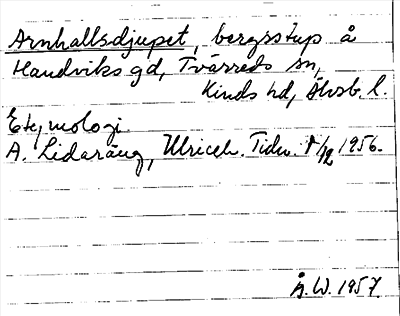 Arnhallsdjupet, bergsstup å
Handviks gd, Tvärreds sn,
Kinds hd, Älvsb. l.
Etymologi.
A. Lidaräng, Ulriceh. Tidn. 1/12 1956.
Å.W. 1957.